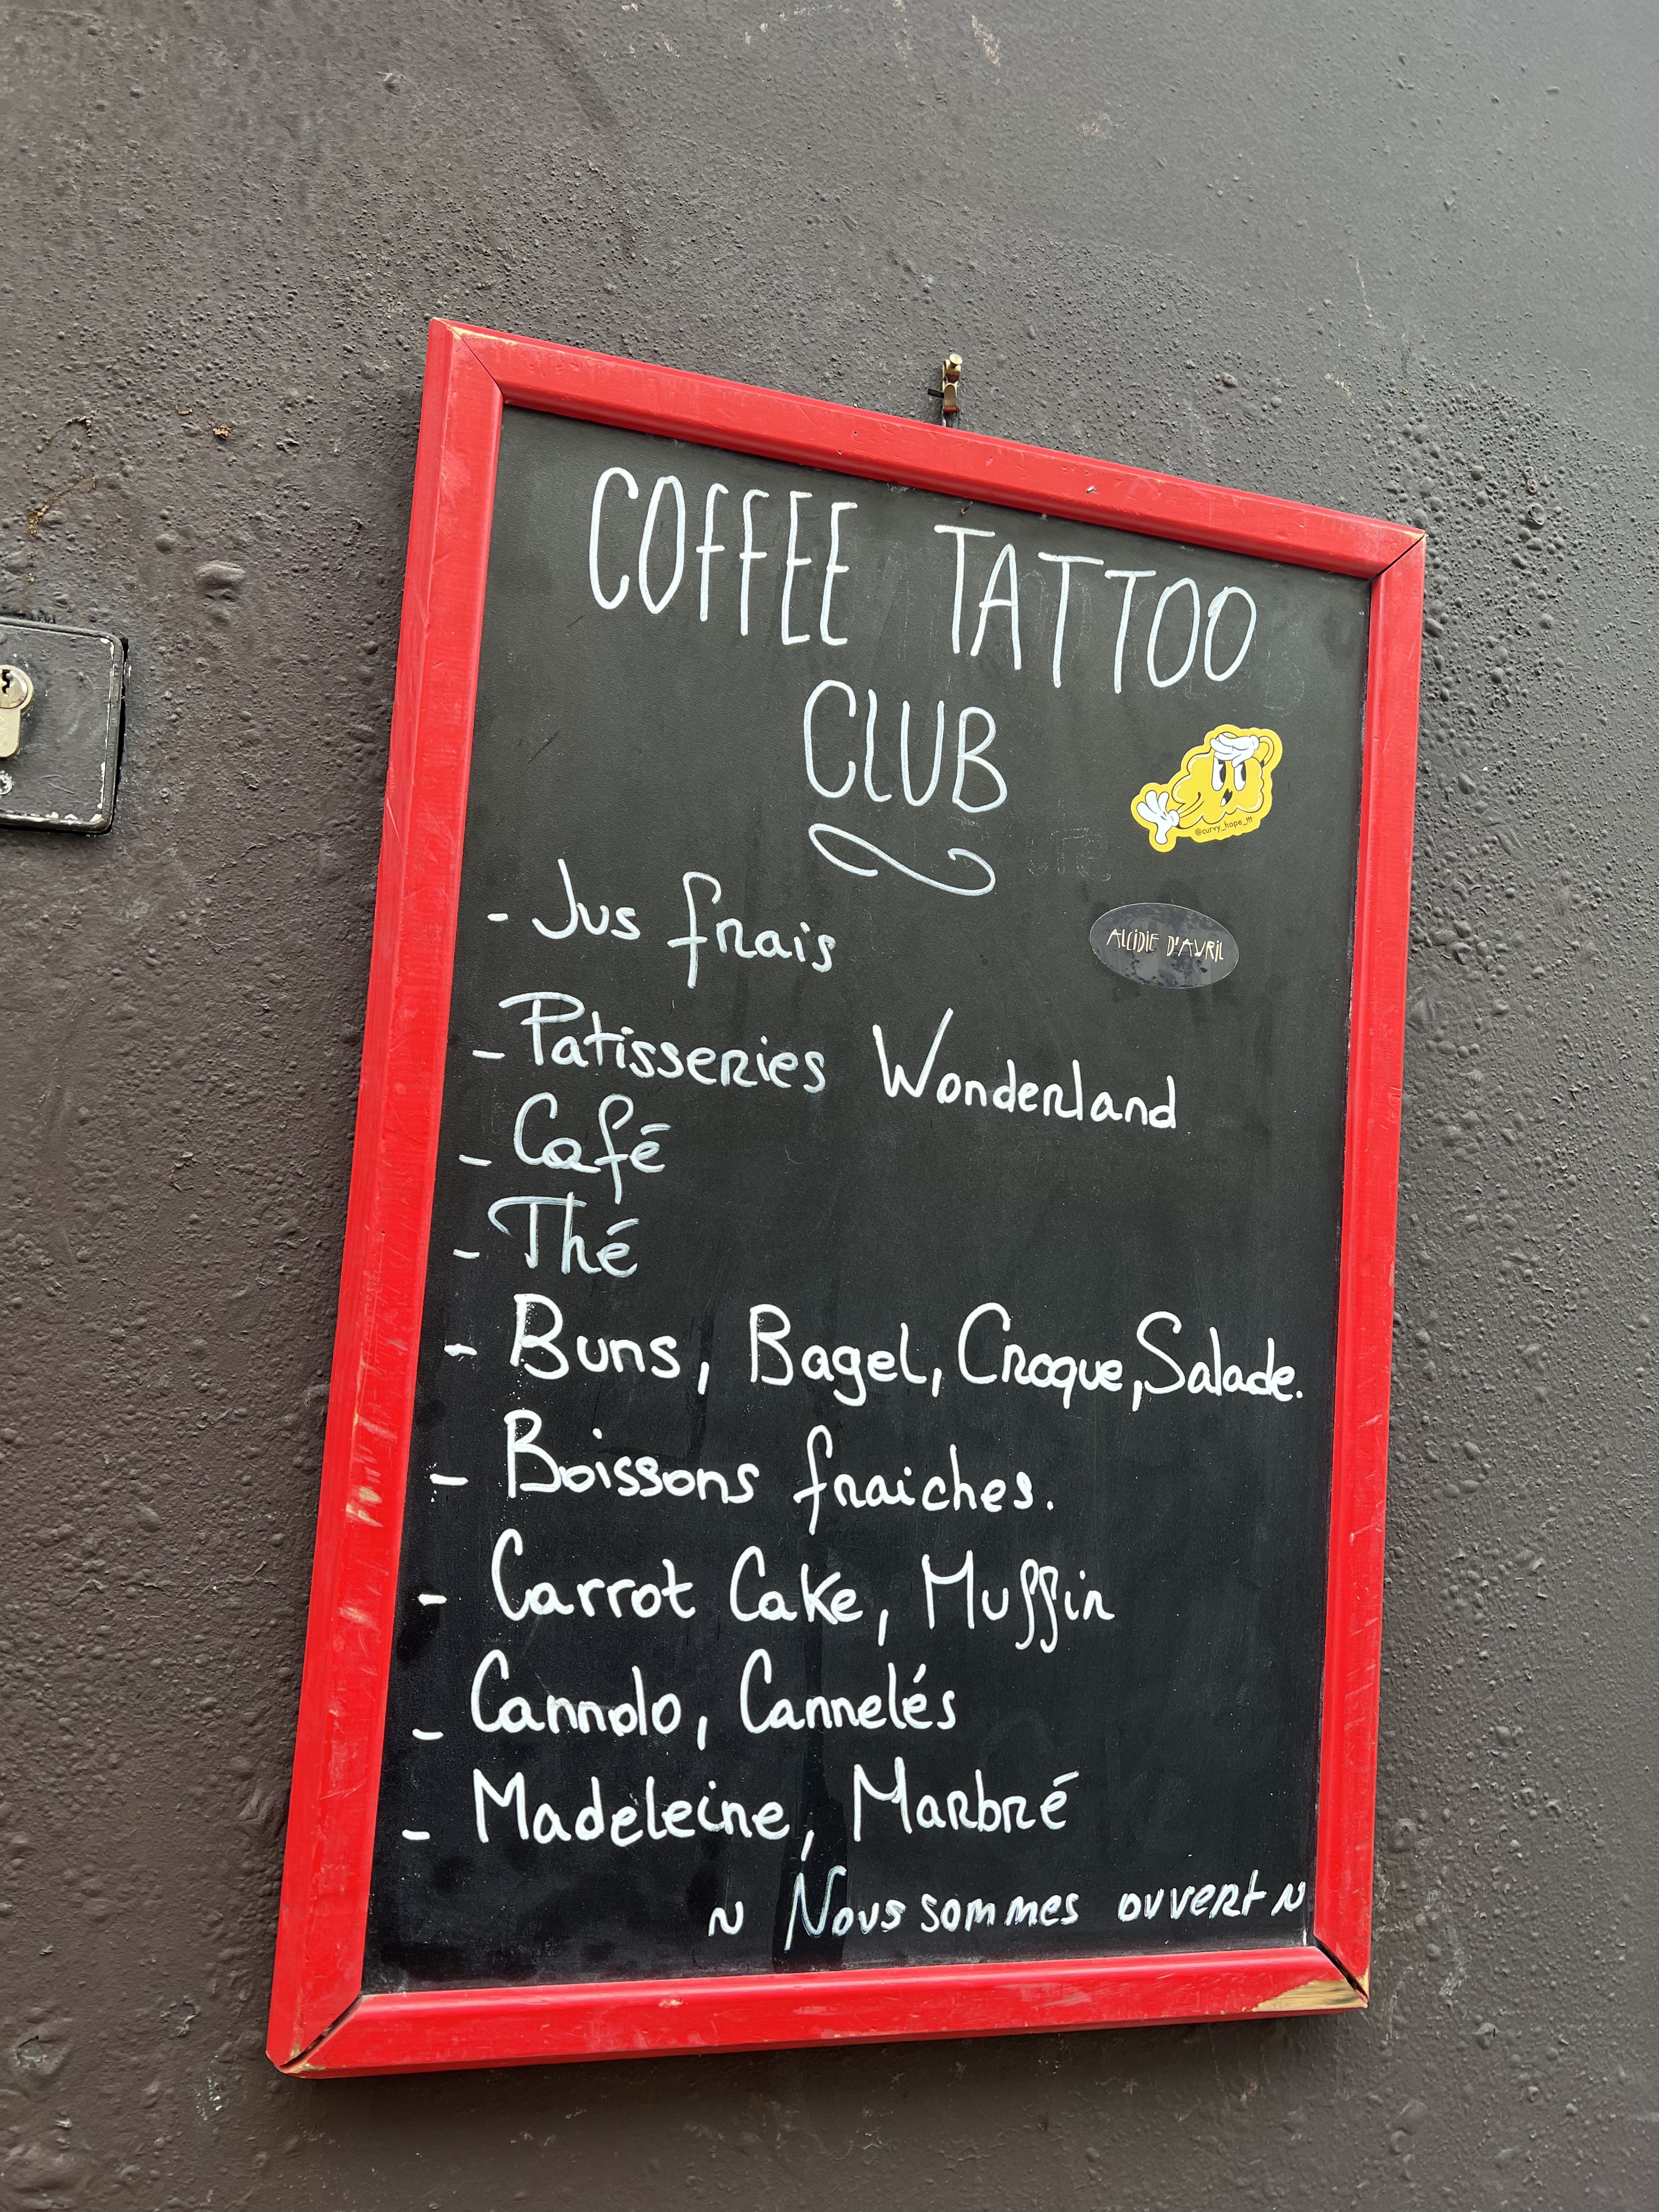 COFFEE TATTOO
CLUB
@curvy_hope_ttt
- Jus frais
ALCIDIE D'AVRIL
- Patisseries Wonderland
- Café
- Thé
- Buns, Bagel, Croque, Salade.
- Boissons fraiches.
- Carrot Cake, Muffin
- Cannolo, Cannelés
- Madeleine, Marbré
~ Nous sommes ouvert ~